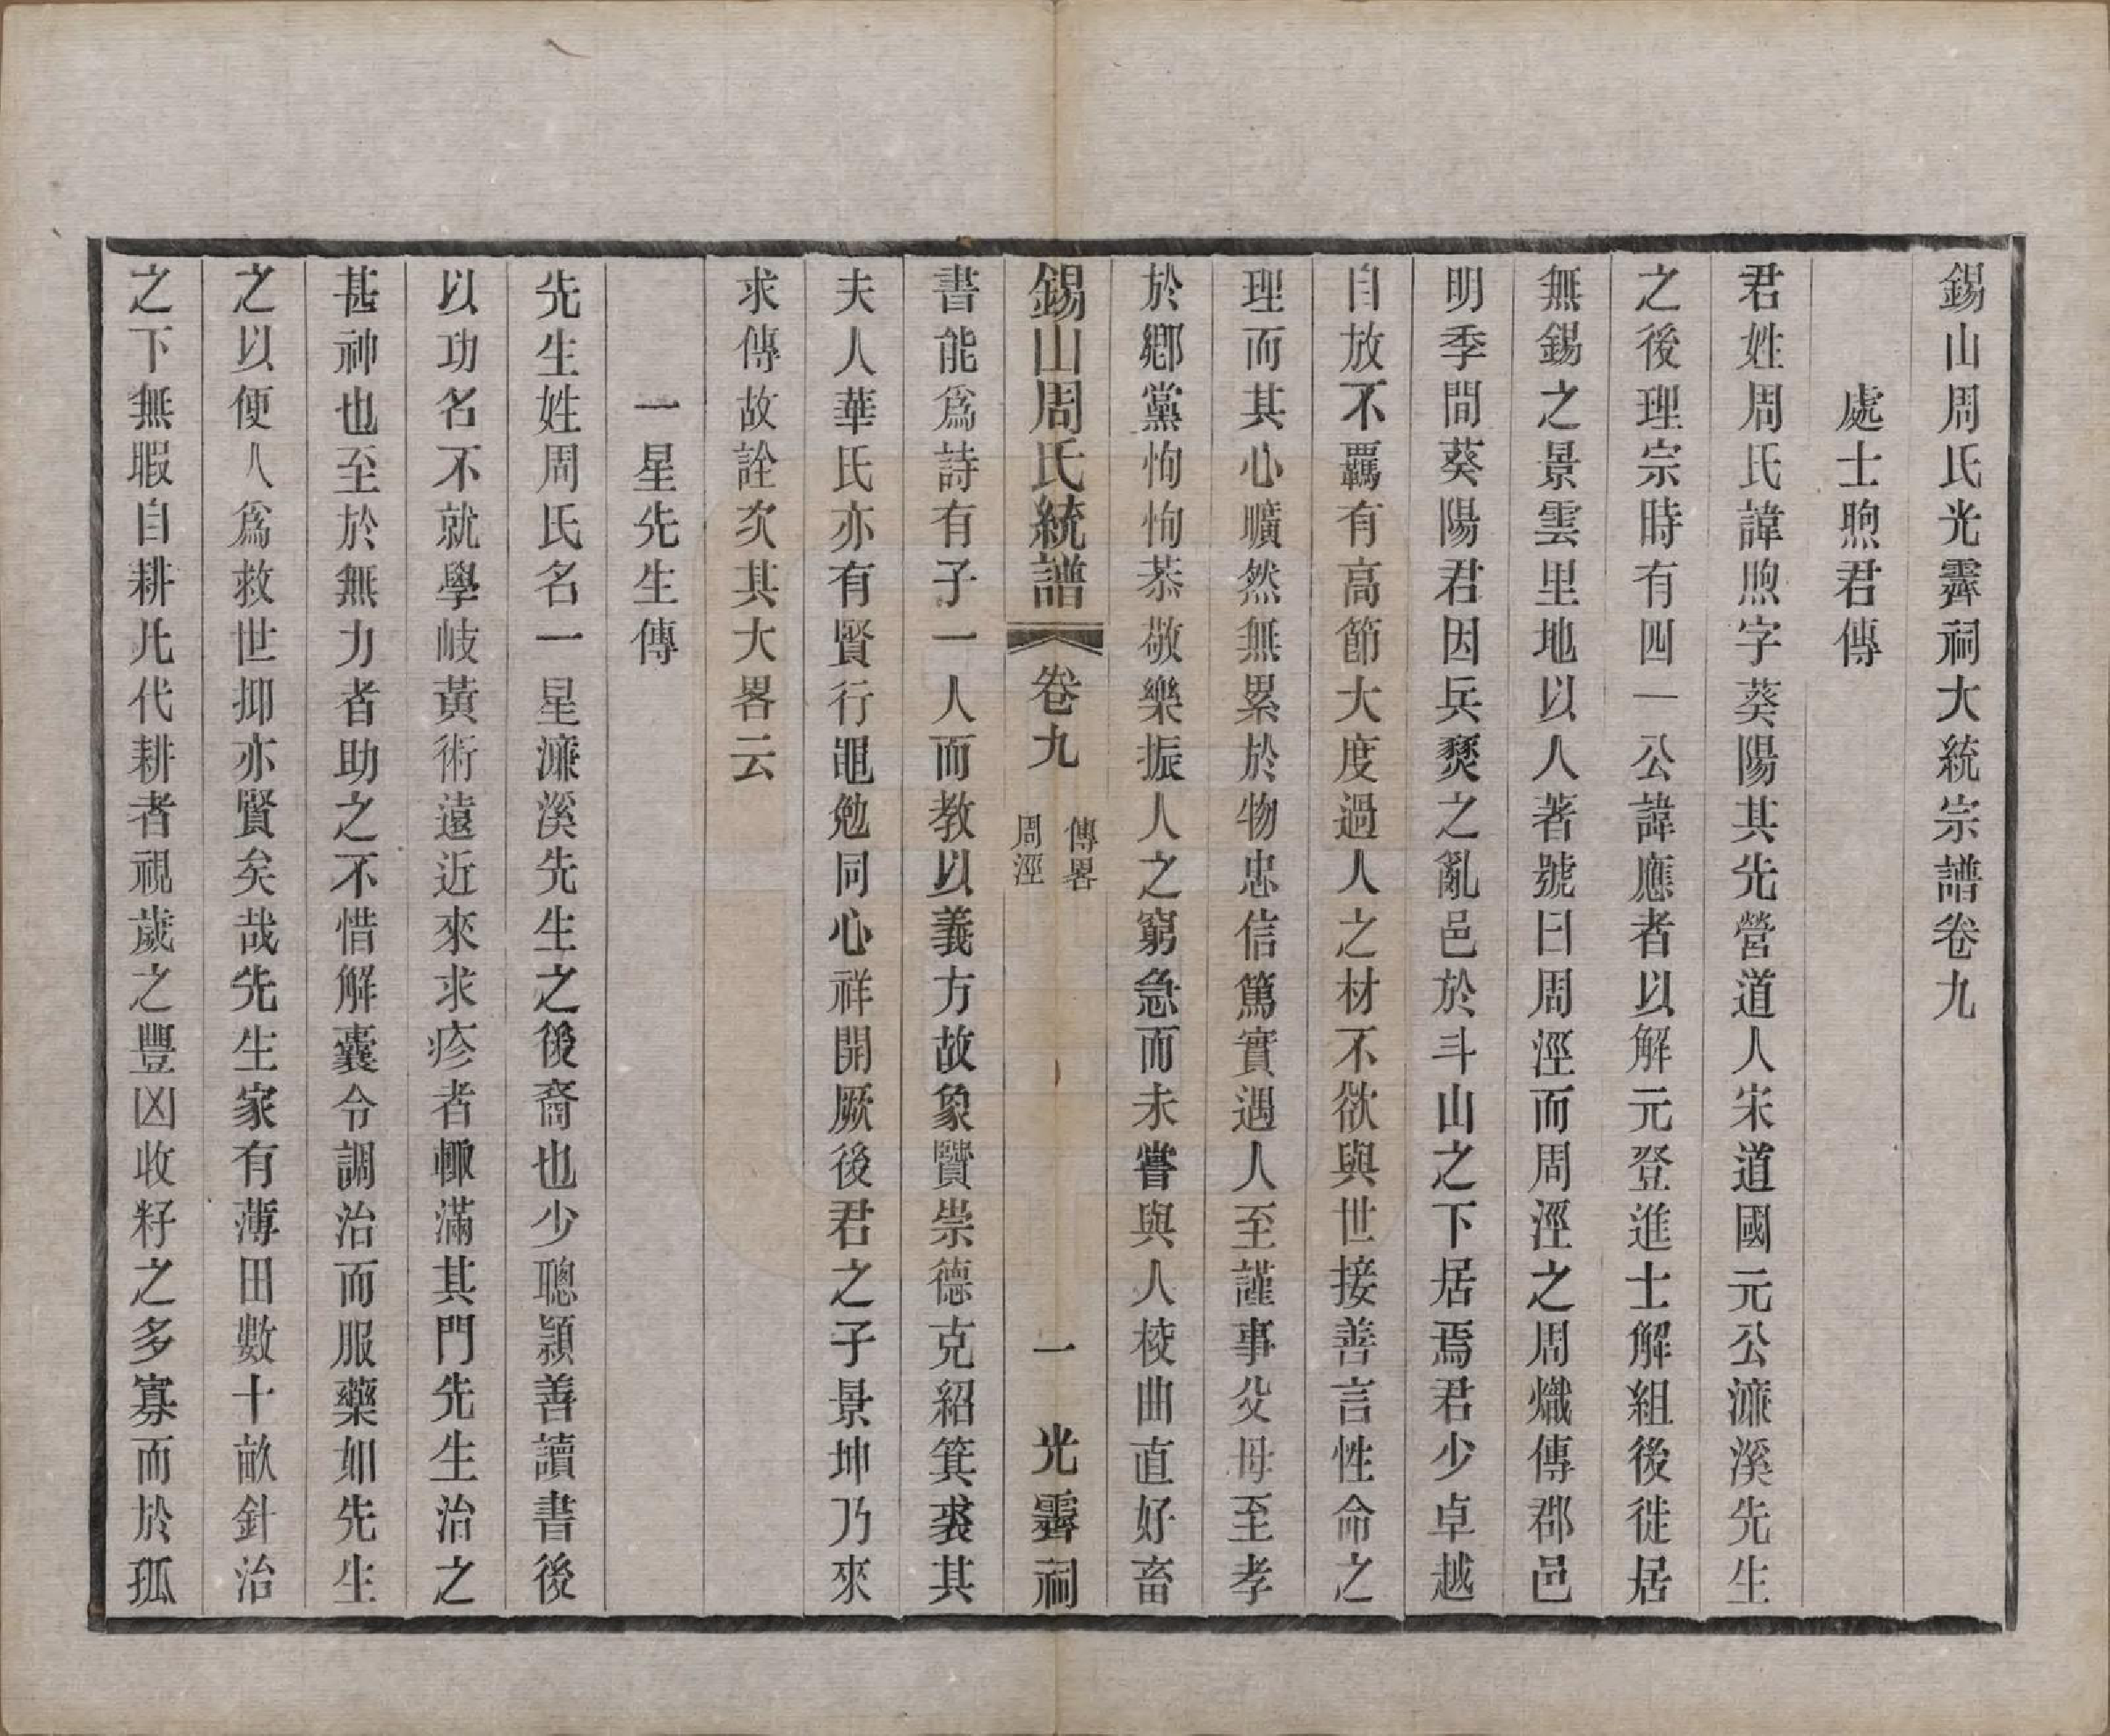 錫山周氏光霽祠大統宗譜卷九
處士煦君傳
君姓周氏諱煦字葵陽其先營道人宋道國元公濂溪先生
之後理宗時有四一公諱應者以解元登進士解組後徙居
無錫之景雲里地以人著號曰周涇而周涇之周熾傳郡邑
明季間葵陽君因兵燹之亂邑於斗山之下居焉君少卓越
自放不羈有高節大度過人之材不欲與世接善言性命之
理而其心曠然無累於物忠信篤實遇人至謹事父母至孝
於鄉黨恂恂恭敬樂振人之窮急而未嘗與人棱曲直好畜
錫山周氏統譜 卷九 傳畧 周涇 一 光霽祠
書能爲詩有子一人而教以義方故象賢崇德克紹箕裘其
夫人華氏亦有賢行黽勉同心祥開厥後君之子景坤乃來
求傳故詮次其大畧云
一星先生傳
先生姓周氏名一星濂溪先生之後裔也少聰穎善讀書後
以功名不就學岐黃術遠近來求疹者輙滿其門先生治之
甚神也至於無力者助之不惜解囊令調治而服藥如先生
之以便人爲救世抑亦賢矣哉先生家有薄田數十畝針治
之下無暇自耕凡代耕者視歲之豐凶收籽之多寡而於孤